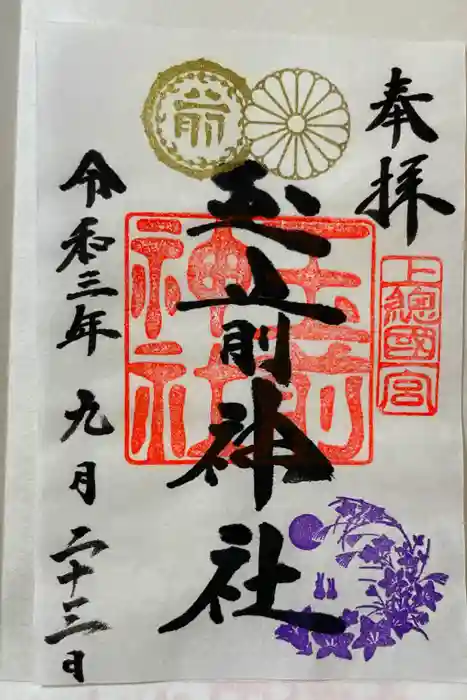 奉拝
上總國一宮
前
玉前神社
玉前神社
令和三年 九月 二十三日